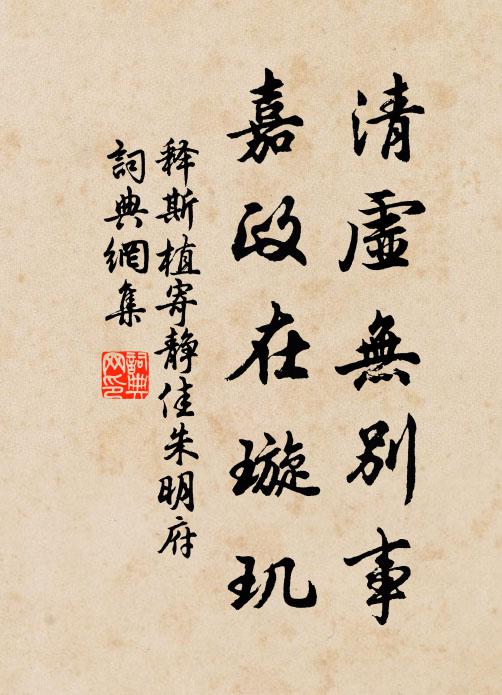 清虛無別事
嘉政在璇玑
释斯植寄静佳朱明府
詞典網集
詞典網印